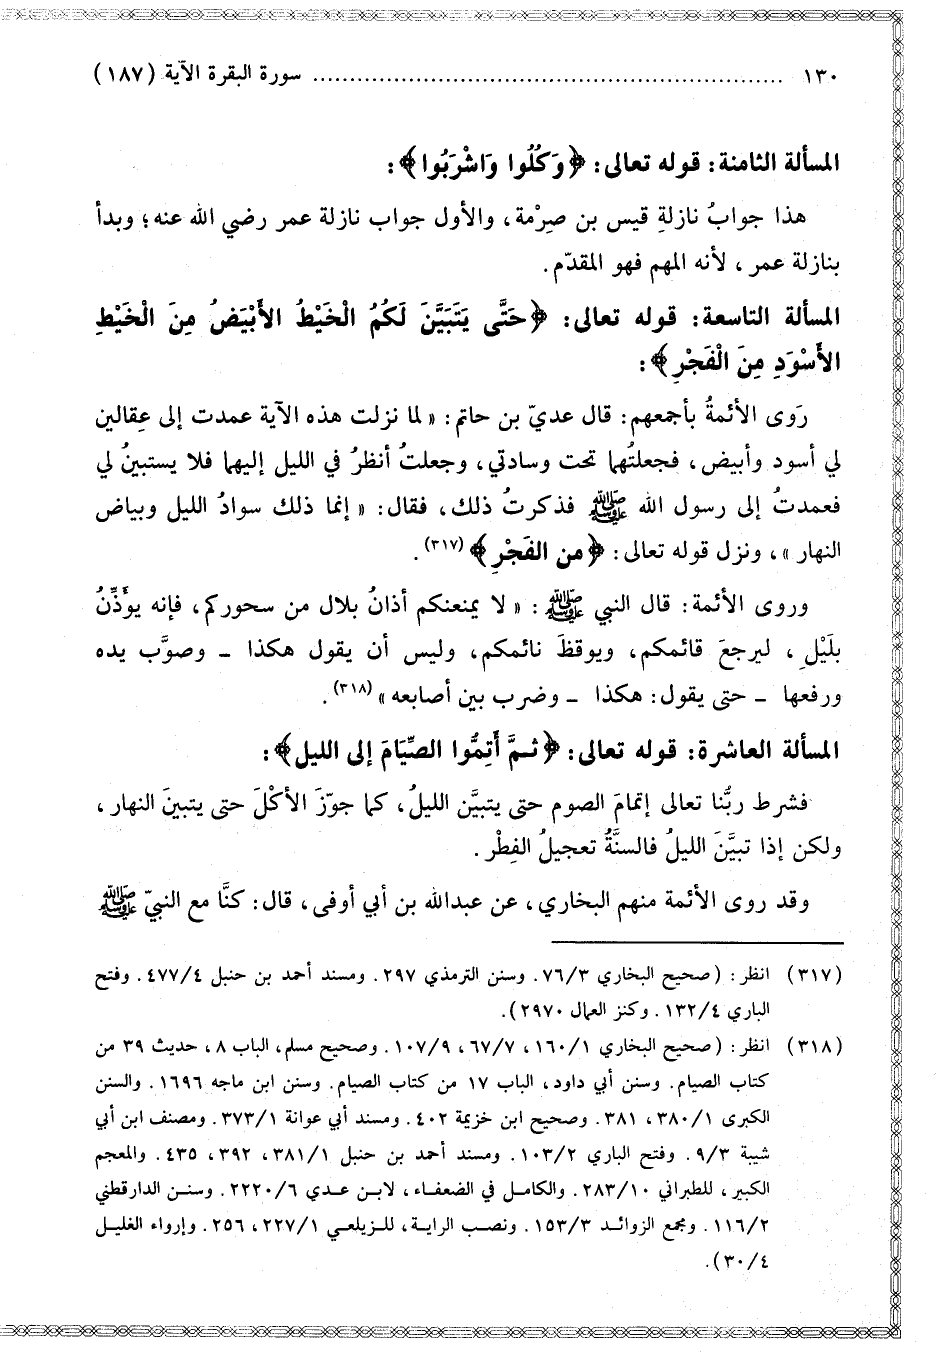 ١٣٠ ................................................................ سورة البقرة الآية (١٨٧)
المسألة الثامنة: قوله تعالى: ﴿وَكُلُوا وَاشْرَبُوا﴾:
هذا جوابُ نازلةِ قيس بن صِرْمة، والأول جواب نازلة عمر رضي الله عنه؛ وبدأ
بنازلة عمر، لأنه المهم فهو المقدّم.
المسألة التاسعة: قوله تعالى: ﴿حَتَّى يَتَبَيَّنَ لَكُمُ الْخَيْطُ الأَبْيَضُ مِنَ الْخَيْطِ
الأَسْوَدِ مِنَ الْفَجْرِ﴾:
رَوى الأئمةُ بأجمعهم: قال عديّ بن حاتم: « لما نزلت هذه الآية عمدت إلى عِقالين
لي أسود وأبيض، فجعلتُهما تحت وسادتي، وجعلتُ أنظرُ في الليل إليهما فلا يستبينُ لي
فعمدتُ إلى رسول الله ﷺ فذكرتُ ذلك، فقال: « إنما ذلك سوادُ الليل وبياض
النهار »، ونزل قوله تعالى: ﴿من الفَجْرِ﴾ (٣١٧).
وروى الأئمة: قال النبي ﷺ: « لا يمنعنكم أذانُ بلال من سحوركم، فإنه يوَذِّنُ
بلَيْلِ، ليرجعَ قائمكم، ويوقظَ نائمكم، وليس أن يقول هكذا ـ وصوَّب يده
ورفعها ـ حتى يقول: هكذا ـ وضرب بين أصابعه » (٣١٨).
المسألة العاشرة: قوله تعالى: ﴿ثمَّ أَتِمُّوا الصِّيَامَ إلى الليل﴾:
فشرط ربُّنا تعالى إتمامَ الصوم حتى يتبيَّن الليلُ، كما جوّزَ الأكْلَ حتى يتبينَ النهار،
ولكن إذا تبيَّنَ الليلُ فالسنَّةُ تعجيلُ الفِطْر.
وقد روى الأئمة منهم البخاري، عن عبدالله بن أبي أوفى، قال: كنَّا مع النبيّ ﷺ
(٣١٧) انظر: (صحيح البخاري ٧٦/٣. وسنن الترمذي ٢٩٧. ومسند أحمد بن حنبل ٤٧٧/٤. وفتح
الباري ١٣٢/٤. وكنز العمال ٢٩٧٠).
(٣١٨) انظر: (صحيح البخاري ١٦٠/١، ٦٧/٧، ١٠٧/٩. وصحيح مسلم، الباب ٨، حديث ٣٩ من
كتاب الصيام. وسنن أبي داود، الباب ١٧ من كتاب الصيام. وسنن ابن ماجه ١٦٩٦. والسنن
الكبرى ٣٨٠/١، ٣٨١. وصحيح ابن خزيمة ٤٠٢. ومسند أبي عوانة ٣٧٣/١. ومصنف ابن أبي
شيبة ٩/٣. وفتح الباري ١٠٣/٢. ومسند أحمد بن حنبل ٣٨١/١، ٣٩٢، ٤٣٥. والمعجم
الكبير، للطبراني ٢٨٣/١٠. والكامل في الضعفاء، لابن عدي ٢٢٢٠/٦. وسنن الدارقطني
١١٦/٢. ومجمع الزوائد ١٥٣/٣. ونصب الراية، للزيلعي ٢٢٧/١، ٢٥٦. وإرواء الغليل
٣٠/٤).